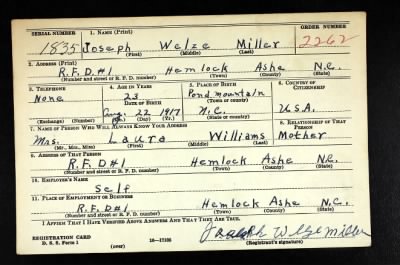 SERIAL NUMBER 1. NAME (Print) ORDER NUMBER
1835 Joseph Welze Miller 2262
(First) (Middle) (Last)
2. ADDRESS (Print)
R.F.D.#1 Hemlock Ashe N.C.
Number and street or R. F. D. number) (Town) (County) (State)
3. TELEPHONE 4. AGE IN YEARS 5. PLACE OF BIRTH 6. COUNTRY OF CITIZENSHIP
None 23 Pond mountain
DATE OF BIRTH (Town or county)
Aug. 22 1917 N.C. U.S.A.
(Exchange) (Number) (Mo.) (Day) (Yr.) (State or country)
7. NAME OF PERSON WHO WILL ALWAYS KNOW YOUR ADDRESS 8. RELATIONSHIP OF THAT PERSON
Mrs. Laura Williams Mother
(Mr., Mrs., Miss) (First) (Middle) (Last)
9. ADDRESS OF THAT PERSON
R.F.D#1 Hemlock Ashe N.C.
(Number and street or R. F. D. number) (Town) (County) (State)
10. EMPLOYER'S NAME
Self
11. PLACE OF EMPLOYMENT OR BUSINESS
R.F.D#1 Hemlock Ashe N.C.
(Number and street or R. F. D. number) (Town) (County) (State)
I AFFIRM THAT I HAVE VERIFIED ABOVE ANSWERS AND THAT THEY ARE TRUE.
REGISTRATION CARD
D. S. S. Form 1 (over) 16—17105 (Registrant's signature)
Joseph Welze Miller